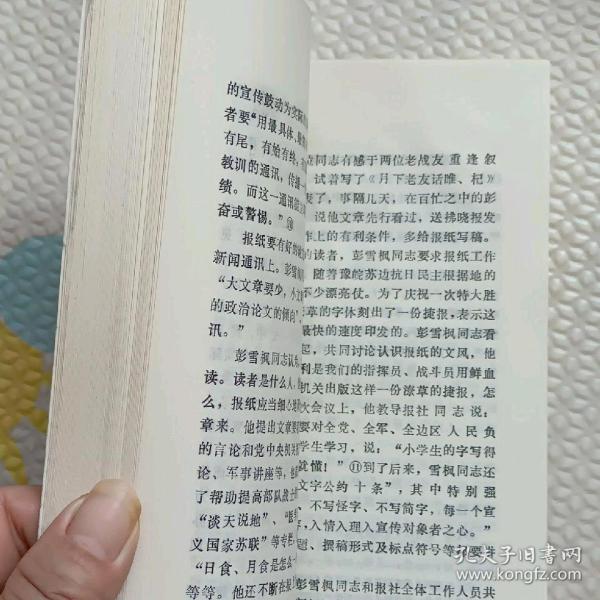 的宣传鼓动为实际
者要“用最具体、
有尾，有始有终，
教训的通讯，传播
绩。而这一通讯
奋或警惕。”⑩
报纸要有好的
新闻通讯上。彭雪
“大文章要少，小文
的政治论文的倾向
讯。”
彭雪枫同志认为
读。读者是什么人，
么，报纸应当细心
章来。他提出文章要
的言论和党中央机关
论、军事讲座等，
了帮助提高部队战士
“谈天说地”、“
义国家苏联”等专栏
“日食、月食是怎么一
等等。他还不断在报
在同志有感于两位老战友重逢叙
试着写了《月下老友话睢、杞》
要了，事隔几天，在百忙之中的彭
说他文章先行看过，送拂晓报发
作上的有利条件，多给报纸写稿。
的读者，彭雪枫同志要求报纸工作
随着豫皖苏边抗日民主根据地的
不少漂亮仗。为了庆祝一次特大胜
草的字体刻出了一份捷报，表示这
最快的速度印发的。彭雪枫同志看
起，共同讨论认识报纸的文风，他
利是我们的指挥员、战斗员用鲜血
机关出版这样一份潦草的捷报，怎
大会议上，他教导报社同志说：
要对全党、全军、全边区人民负
学生学习，说：“小学生的字写得
能懂！”⑪到了后来，雪枫同志还
文字公约十条”，其中特别强
、不写怪字、不写简字，每一个宣
，入情入理入宣传对象者之心。”
题、撰稿形式及标点符号等都要进
彭雪枫同志和报社全体工作人员共
孔夫子旧书网
www.kongfz.com